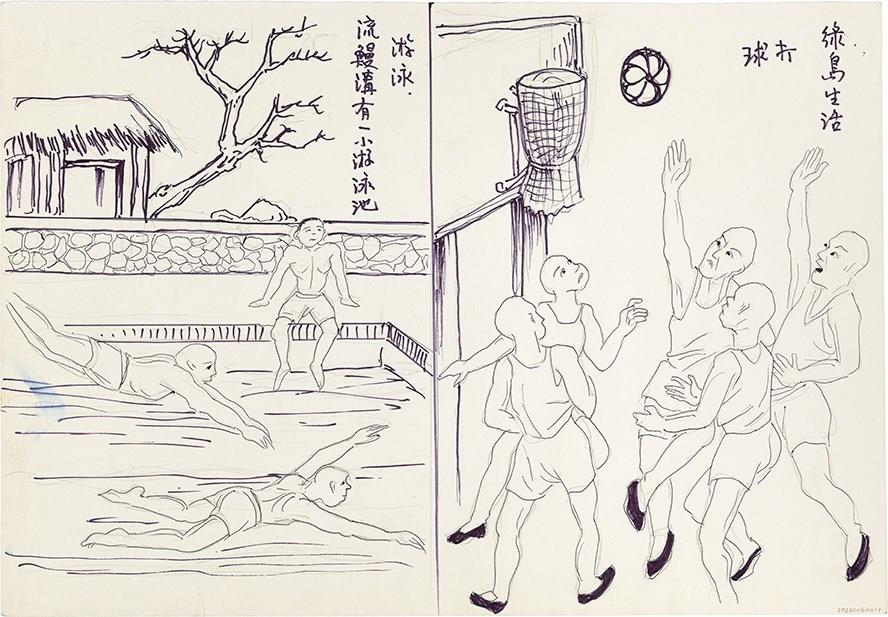 綠島生活
打球
游泳.
流鰻溝有一小游泳池